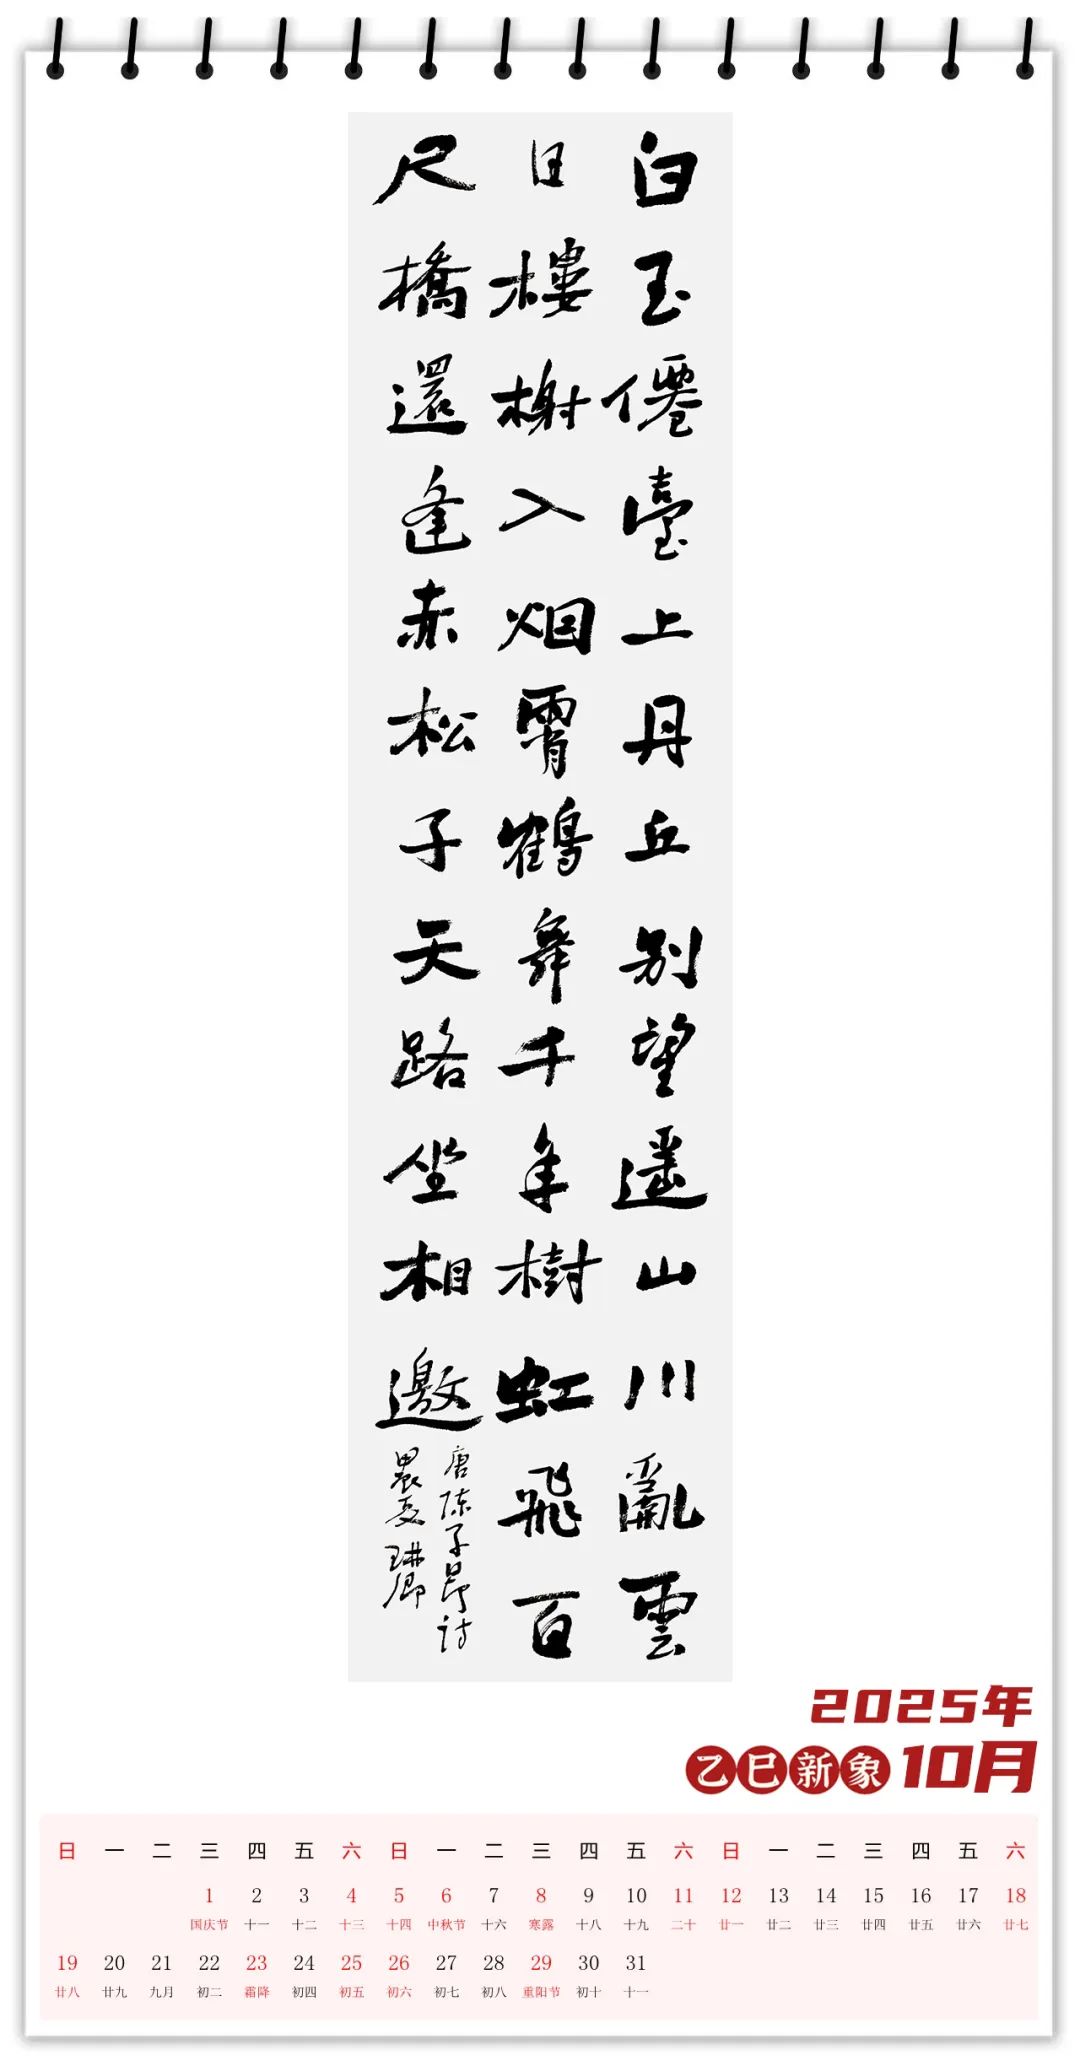 白玉僊臺上丹丘别望遥山川亂雲
日樓榭入烟霄鶴舞千年樹虹飛百
尺橋還逢赤松子天路坐相邀
唐陈子昂诗
甲辰夏
2025年
乙巳新象 10月
日 一 二 三 四 五 六 日 一 二 三 四 五 六 日 一 二 三 四 五 六
1 2 3 4 5 6 7 8 9 10 11 12 13 14 15 16 17 18
国庆节 十一 十二 十三 十四 中秋节 十六 寒露 十八 十九 二十 廿一 廿二 廿三 廿四 廿五 廿六 廿七
19 20 21 22 23 24 25 26 27 28 29 30 31
廿八 廿九 九月 初二 霜降 初四 初五 初六 初七 初八 重阳节 初十 十一